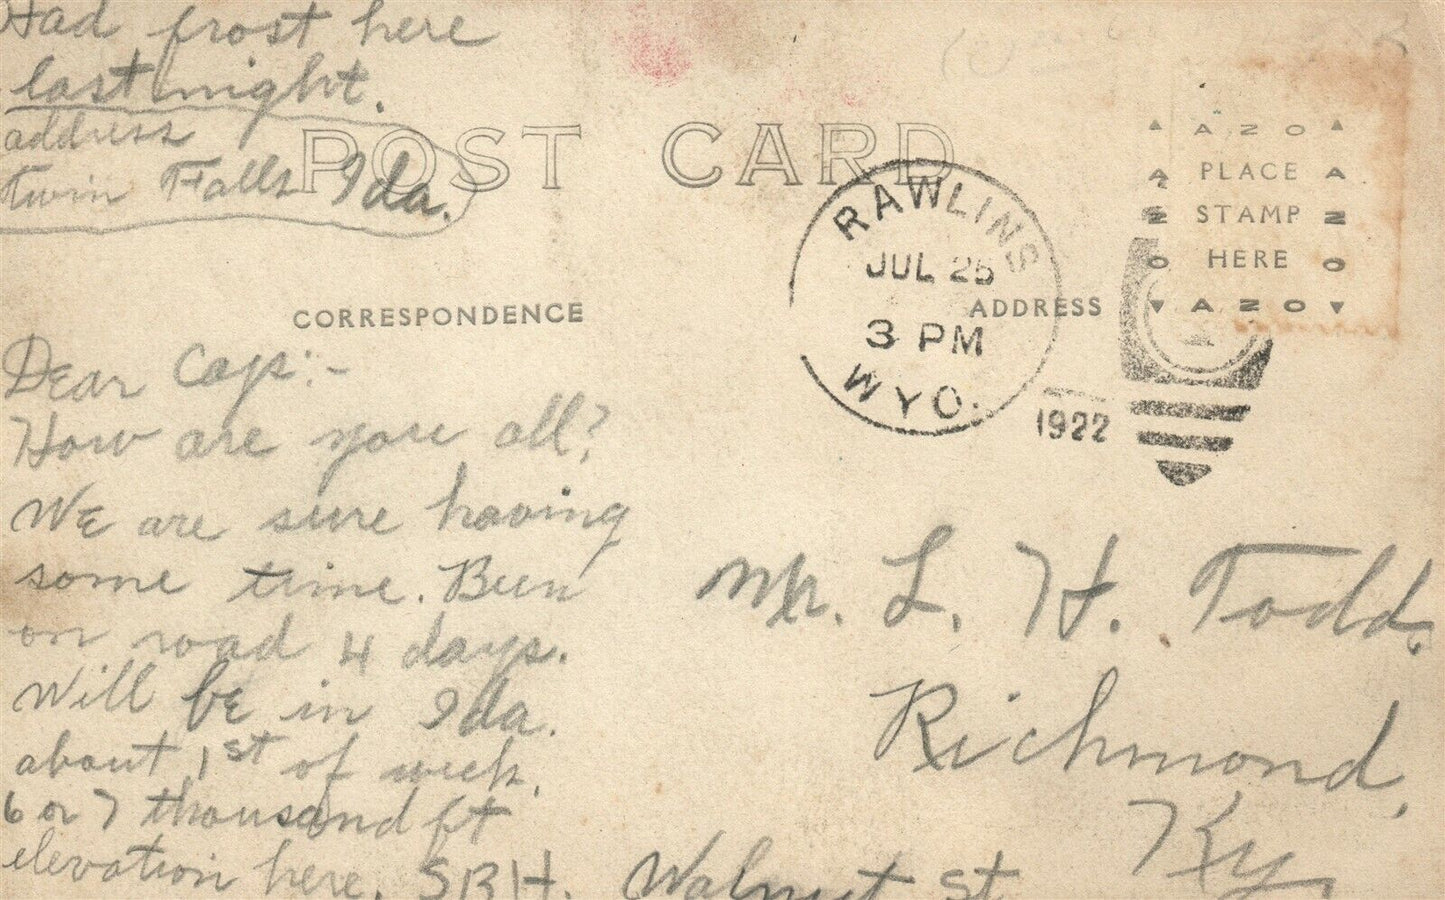 Had frost here
last night.
address
twin Falls Ida.
POST CARD
CORRESPONDENCE
Dear Caps:-
How are you all?
We are sure having
some time. Been
on road 4 days.
Will be in Ida.
about 1st of week.
6 or 7 thousand ft
elevation here. SBH.
RAWLINS
JUL 25
3 PM
WYO.
1922
ADDRESS
AZO
PLACE
STAMP
HERE
AZO
AZO
AZO
Mr. L. H. Todd.
Richmond,
Ky.
Walnut St